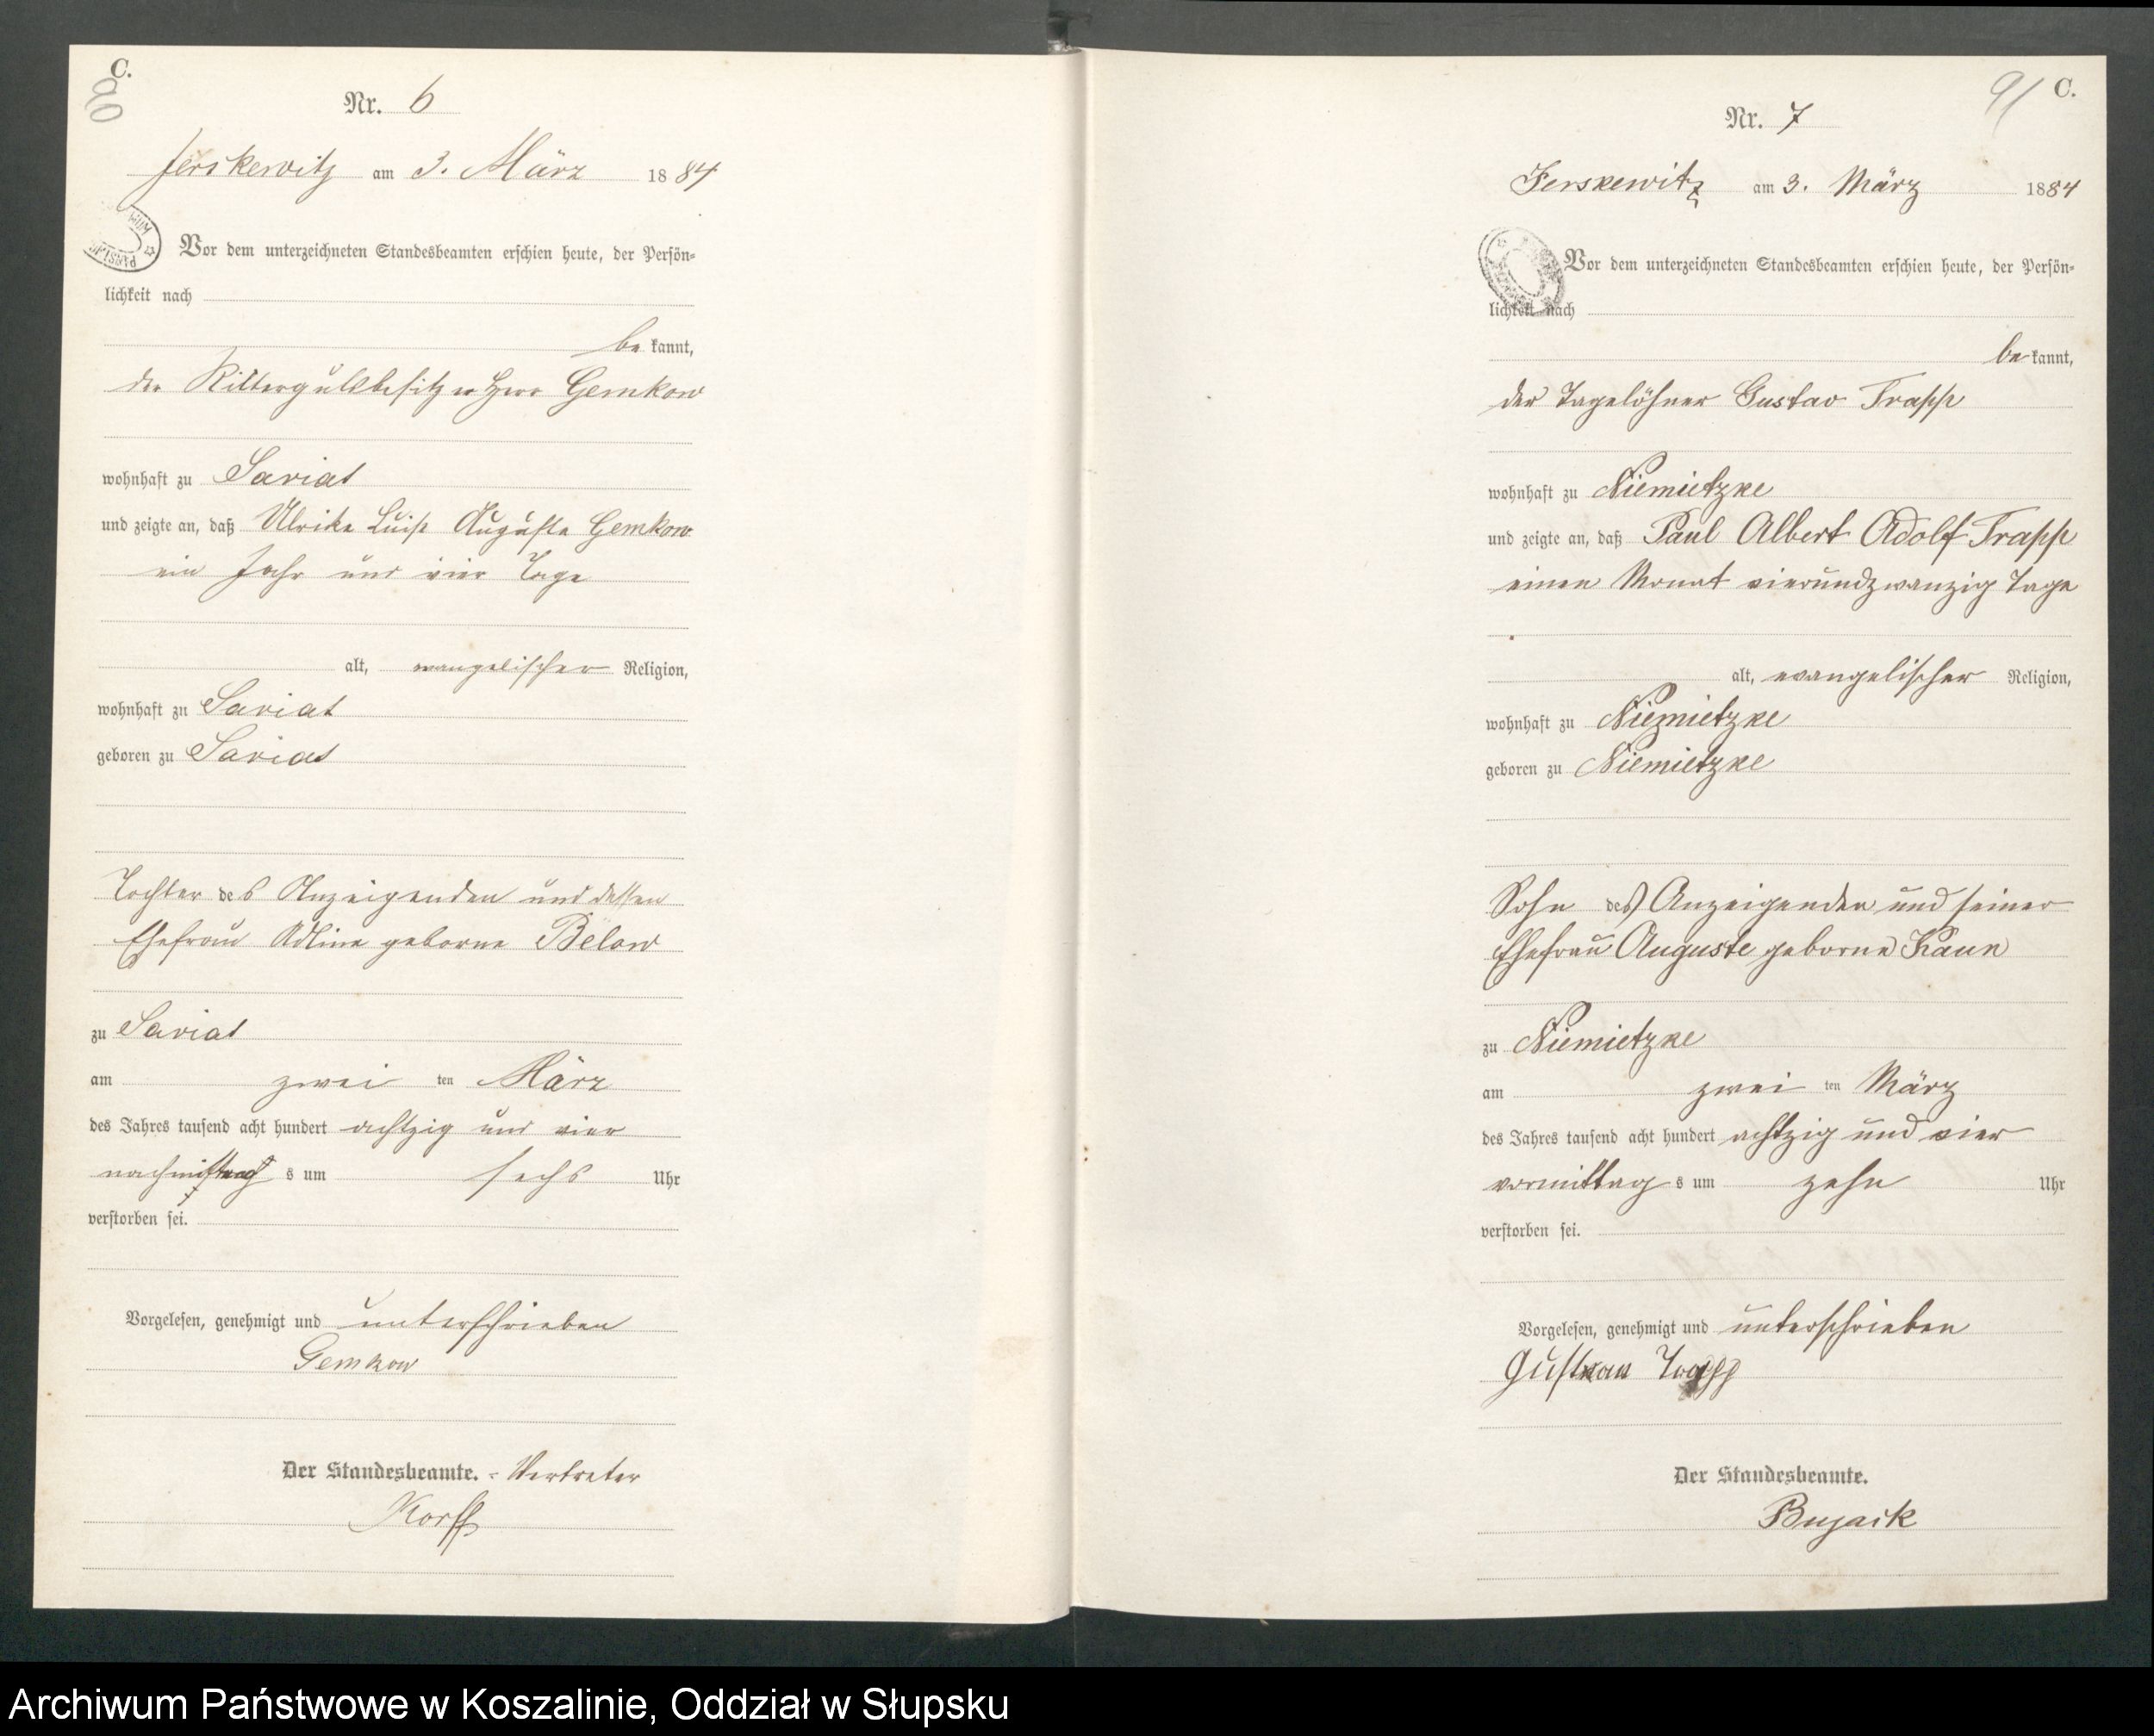 C.
90
Nr. 6
Jerskewitz am 3. März 1884
Vor dem unterzeichneten Standesbeamten erschien heute, der Persön-
lichkeit nach
be kannt,
der Rittergutsbesitzer Herr Gemkow
wohnhaft zu Saviat
und zeigte an, daß Ulrike Luise Auguste Gemkow
ein Jahr und vier Tage
alt, evangelischer Religion,
wohnhaft zu Saviat
geboren zu Saviat
Tochter des Anzeigenden und dessen
Ehefrau Adline geborne Below
zu Saviat
am zwei ten März
des Jahres tausend acht hundert achtzig und vier
nachmittag s um sechs Uhr
verstorben sei.
Vorgelesen, genehmigt und unterschrieben
Gemkow
Der Standesbeamte. - Vertreter
Korff
91 C.
Nr. 7
Jerskewitz am 3. März 1884
Vor dem unterzeichneten Standesbeamten erschien heute, der Persön-
lichkeit nach
be kannt,
der Tagelöhner Gustav Trapp
wohnhaft zu Niemietzke
und zeigte an, daß Paul Albert Adolf Trapp
einen Monat vierundzwanzig Tage
alt, evangelischer Religion,
wohnhaft zu Niemietzke
geboren zu Niemietzke
Sohn des Anzeigenden und seiner
Ehefrau Auguste geborne Kaun
zu Niemietzke
am zwei ten März
des Jahres tausend acht hundert achtzig und vier
vormittag s um zehn Uhr
verstorben sei.
Vorgelesen, genehmigt und unterschrieben
Trapp
Der Standesbeamte.
Bujack
Archiwum Państwowe w Koszalinie, Oddział w Słupsku